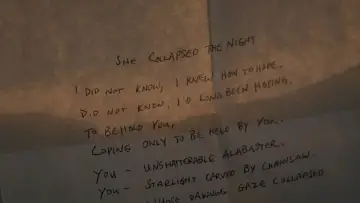 SHE COLLAPSED THE NIGHT
I DID NOT KNOW, I KNEW HOW TO HOPE.
DID NOT KNOW, I'D LONG BEEN HOPING,
TO BEHOLD YOU,
COPING ONLY TO BE HELD BY YOU.
YOU - UNSHATTERABLE ALABASTER.
YOU - STARLIGHT CARVED BY CHAINSAW.
WHOSE DAWNING GAZE COLLAPSED